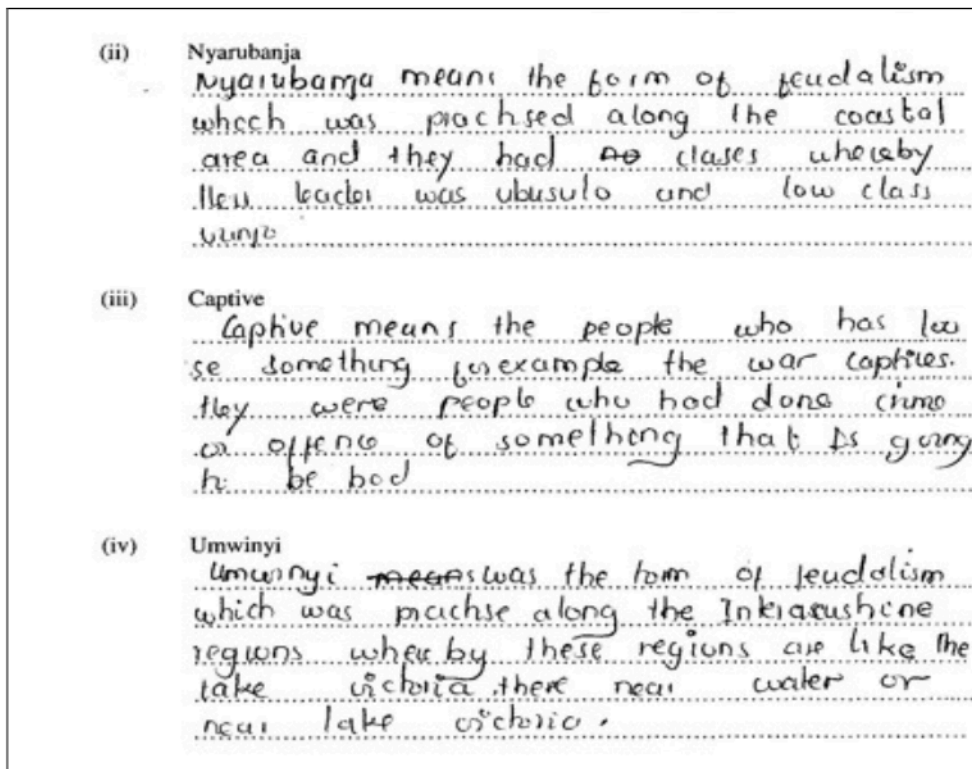 (ii) Nyarubanja
Nyarubanja means the form of feudalism
which was practised along the coastal
area and they had clases whereby
leader was ubusulo and low class
(iii) Captive
Captive means the people who has loo
se something for example the war captives.
they were people who had done crime
or offence of something that is going
to be bad
(iv) Umwinyi
Umwinyi means was the form of feudalism
which was practise along the
regions whereby these regions are like the
lake victoria there near water or
near lake victoria.